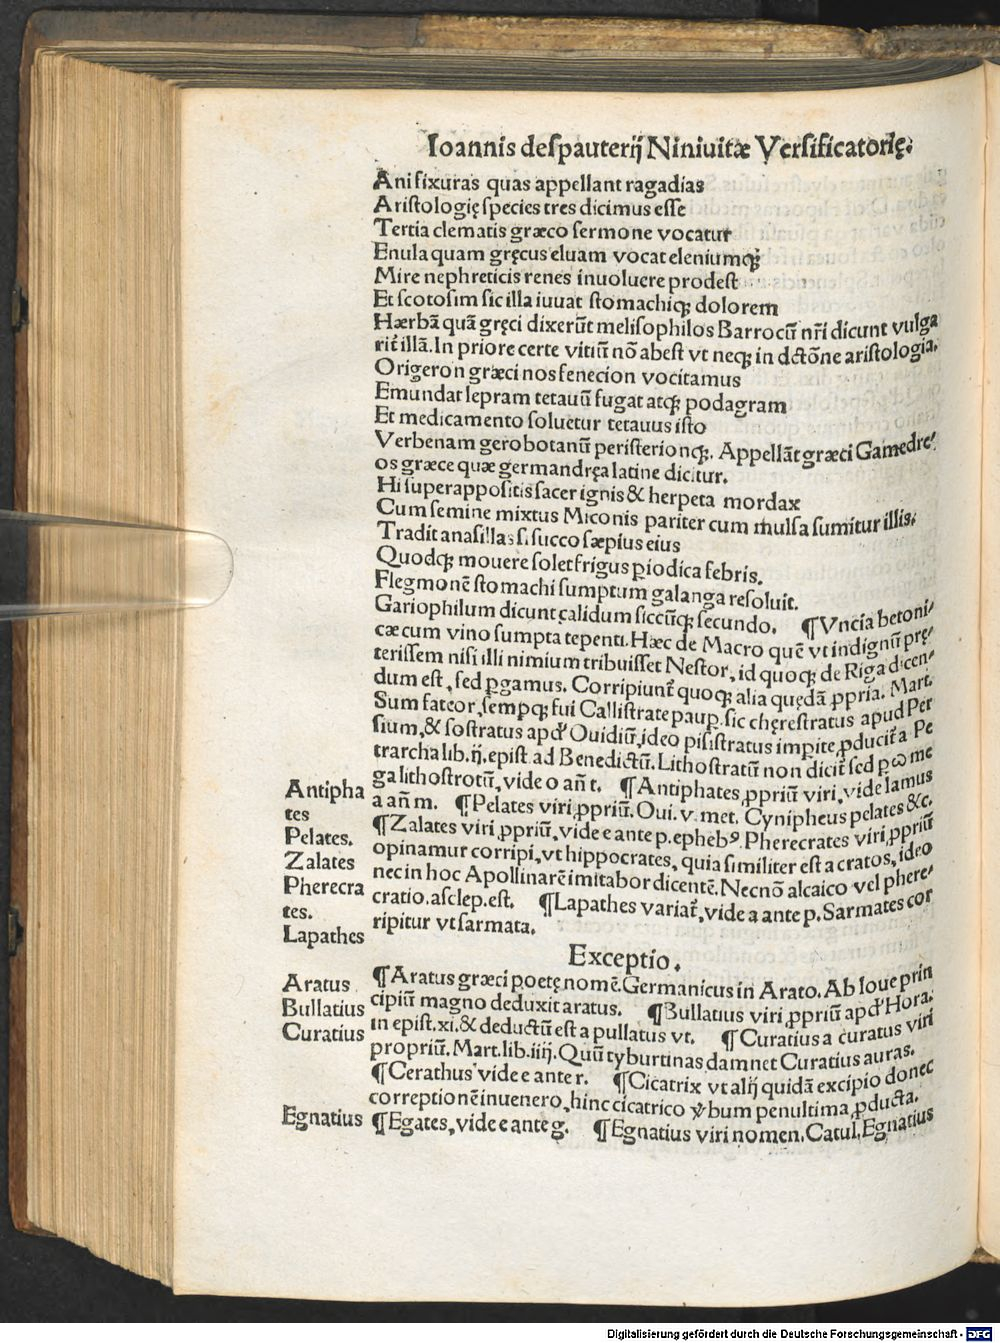 Ioannis deſpauterij Niniuitæ Verſificatorię.
Ani fixuras quas appellant ragadias
Ariſtologię ſpecies tres dicimus eſſe
Tertia clematis græco ſermone vocatur
Enula quam gręcus eluam vocat eleniumqꝫ
Mire nephreticis renes inuoluere prodeſt
Et ſcotoſim ſic illa iuuat ſtomachiqꝫ dolorem
Hærbā quā gręci dixerūt meliſophilos Barrocū nr̄i dicunt vulga
rit̃ illā. In priore certe vitiū nō abeſt vt neqꝫ in dctōne ariſtologia.
Origeron græci nos ſenecion vocitamus
Emundat lepram tetauū fugat atqꝫ podagram
Et medicamento ſoluetur tetauus iſto
Verbenam gerobotanū periſterionqꝫ. Appellāt græci Gamedre⸗
os græce quæ germandręa latine dicitur.
Hi ſuperappoſitis ſacer ignis & herpeta mordax
Cum ſemine mixtus Miconis pariter cum mulſa ſumitur illis.
Tradit anaſillas ſi ſucco ſæpius eius
Quodqꝫ mouere ſolet frigus ꝑiodica febris.
Flegmonē ſtomachi ſumptum galanga reſoluit.
Gariophilum dicunt calidum ſiccūqꝫ ſecundo. ¶Vncia betoni⸗
cæ cum vino ſumpta tepenti. Hæc de Macro quē vt indignū prę⸗
teriſſem niſi illi nimium tribuiſſet Neſtor, id quoqꝫ de Riga dicen⸗
dum eſt, ſed ꝑgamus. Corripiunt̃ quoqꝫ alia quędā ꝓpria. Mart.
Sum fateor, ſempqꝫ fui Calliſtrate pauꝑ. ſic chęreſtratus apud Per
ſium, & ſoſtratus apd' Ouidiū, ideo piſiſtratus impite ꝓducit̃ a Pe
trarcha lib. ij. epiſt. ad Benedictū. Lithoſtratū non dicit̃ ſed ꝑ ω me
ga lithoſtrotū, vide o añ t. ¶Antiphates, ꝓpriū viri, vide lamus
a añ m. ¶Pelates viri ꝓpriū. Oui. v. met. Cynipheus pelates &c.
¶Zalates viri ꝓpriū, vide e ante p. ephebꝰ. Pherecrates viri ꝓpriū
opinamur corripi, vt hippocrates, quia ſimiliter eſt a cratos, ideo
nec in hoc Apollinarē imitabor dicentē. Necnō alcaico vel phere⸗
cratio. aſclep. eſt. ¶Lapathes variat̃, vide a ante p. Sarmates cor
ripitur vt ſarmata.
Antipha
tes
Pelates.
Zalates
Pherecra
tes.
Lapathes
Exceptio.
¶Aratus græci poetę nomē. Germanicus in Arato. Ab Ioue prin
cipiū magno deduxit aratus. ¶Bullatius viri ꝓpriū apd' Hora.
in epiſt. xi. & deductū eſt a pullatus vt. ¶Curatius a curatus viri
propriū. Mart. lib. iiij. Quū tyburtinas damnet Curatius auras.
¶Cerathus vide e ante r. ¶Cicatrix vt alij quidā excipio donec
correptionē inuenero, hinc cicatrico ꝟbum penultima ꝓducta.
¶Egates, vide e ante g. ¶Egnatius viri nomen. Catul. Egnatius
Aratus
Bullatius
Curatius
Egnatius
Digitalisierung gefördert durch die Deutsche Forschungsgemeinschaft - DFG